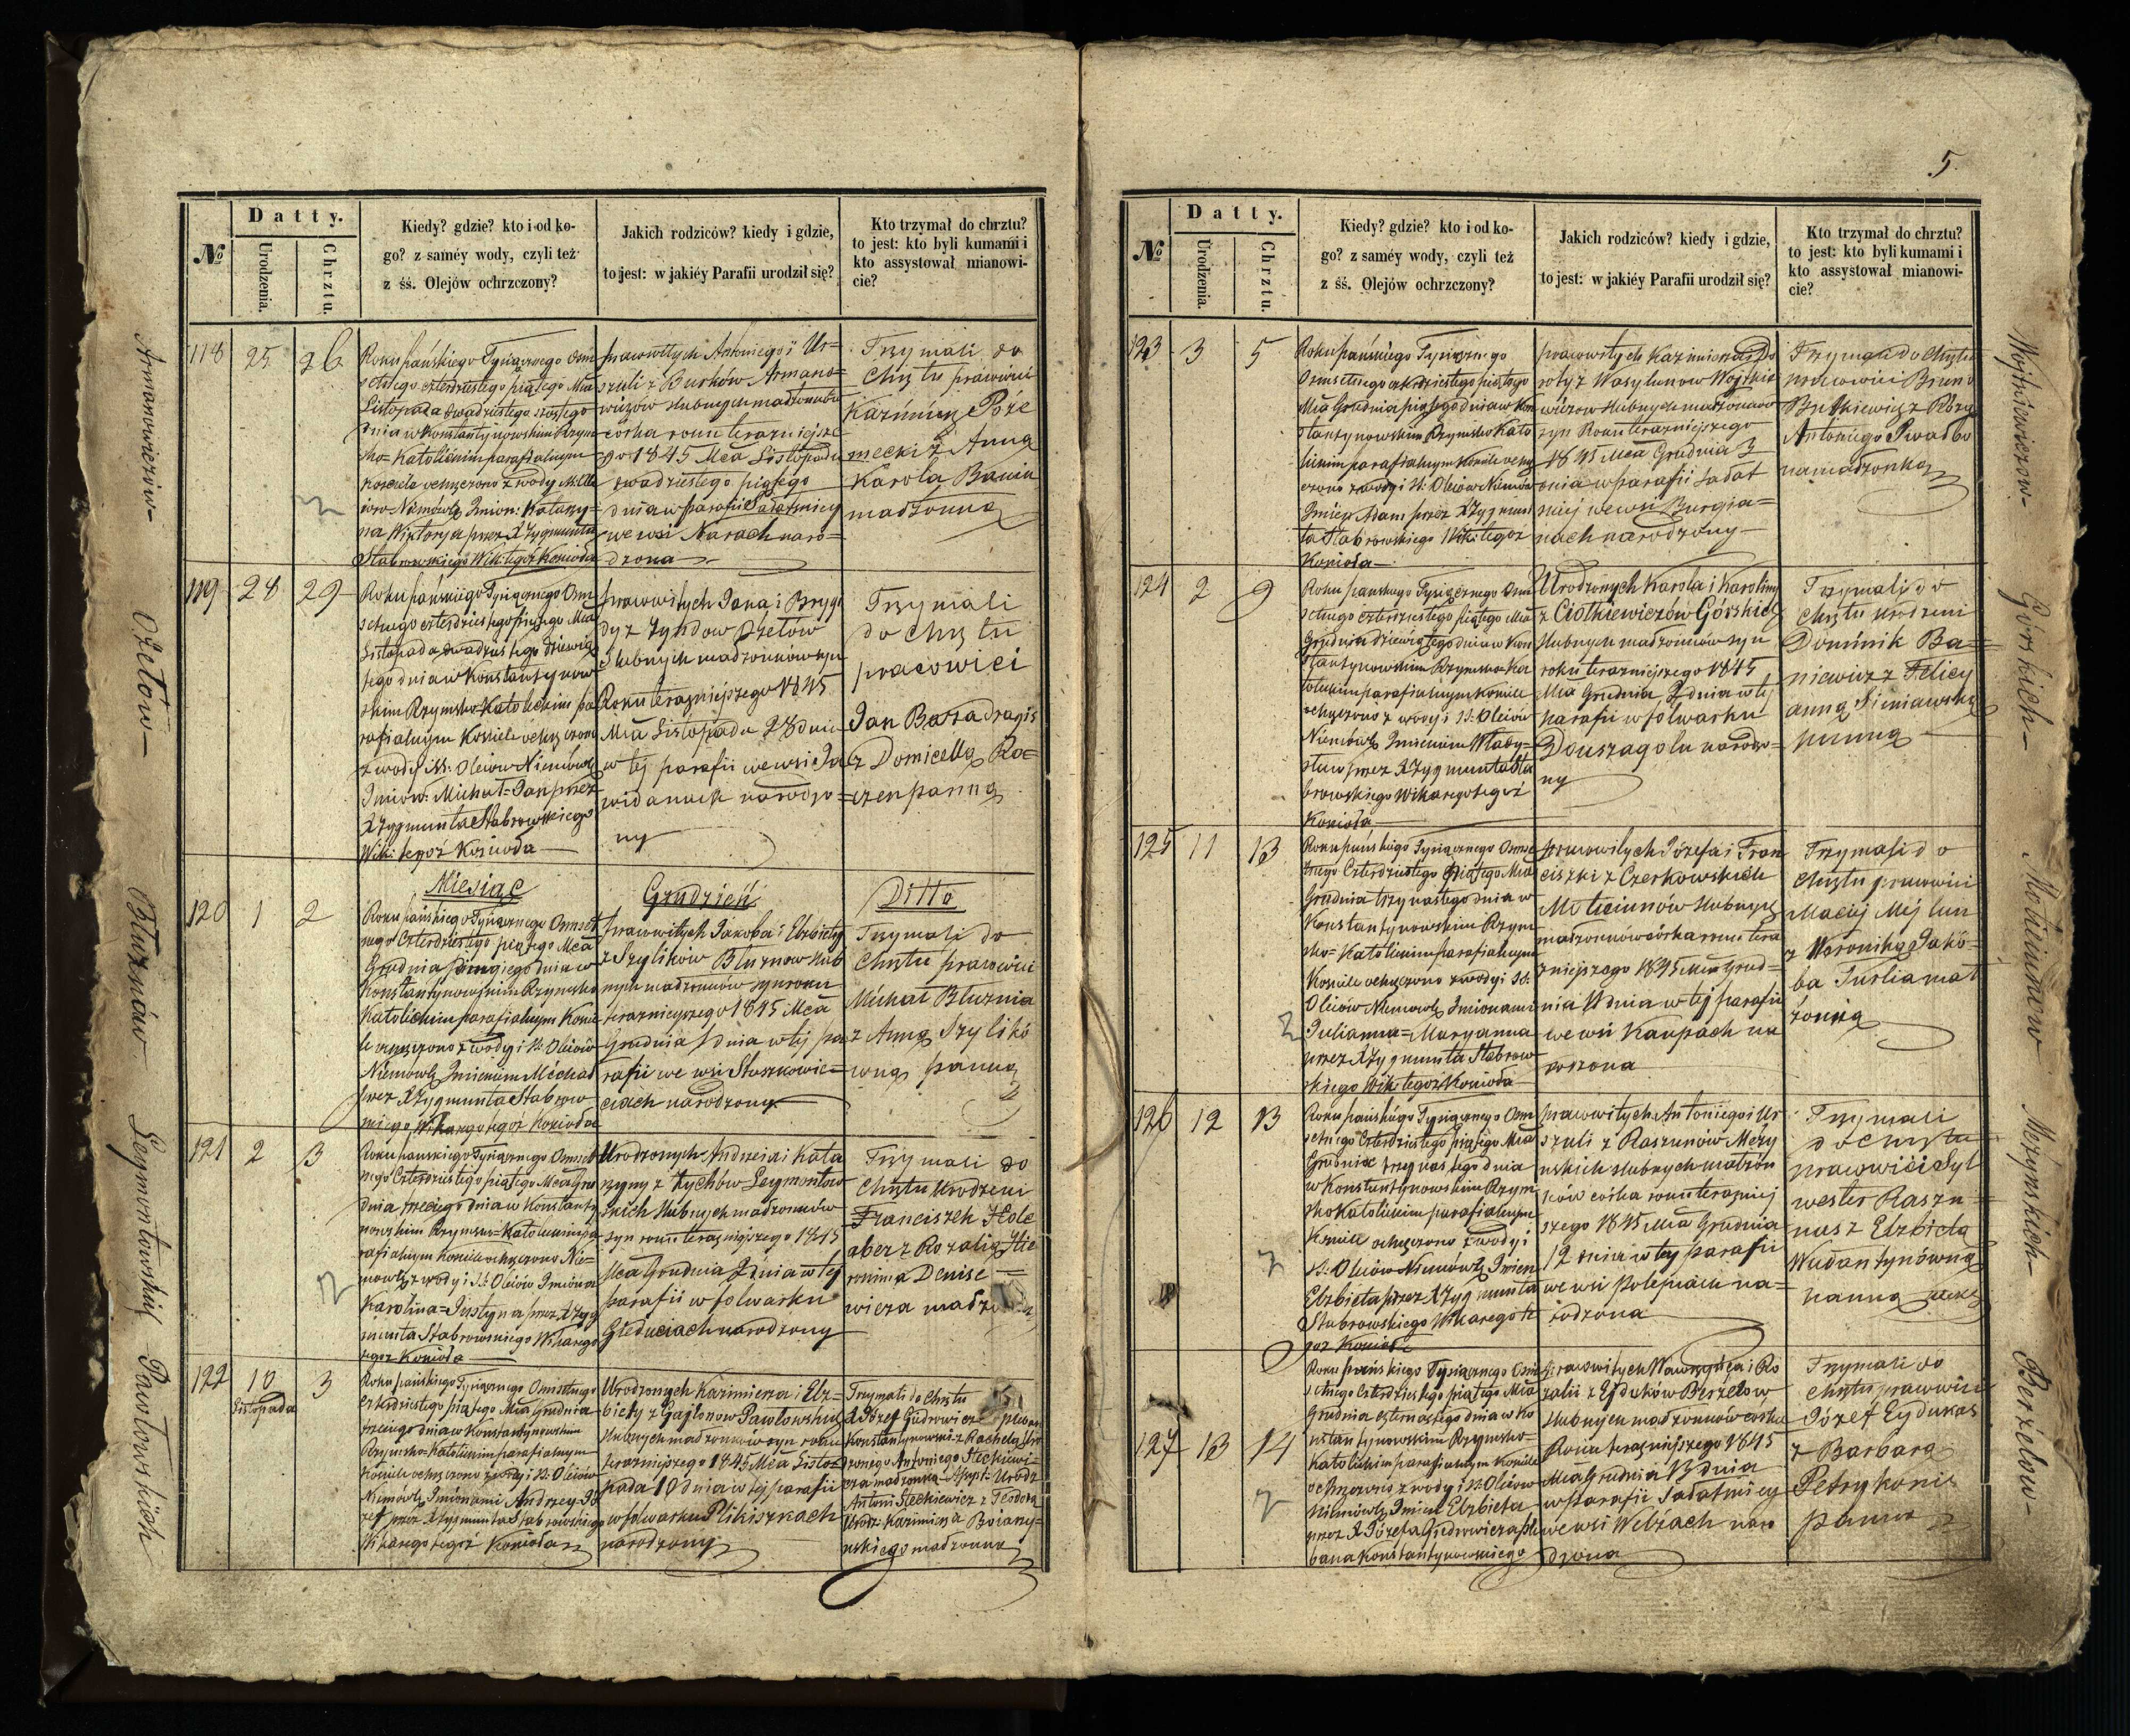 5
Datty.
№
Urodzenia.
Chrztu.
Kiedy? gdzie? kto i od ko-
go? z saméy wody, czyli też
z śś. Olejów ochrzczony?
Jakich rodziców? kiedy i gdzie,
to jest: w jakiéy Parafii urodził się?
Kto trzymał do chrztu?
to jest: kto byli kumami i
kto assystował mianowi-
cie?
Armanowiczów-
118
25
26
Roku pańskiego Tysiącznego Osm
setnego czterdziestego piątego Mca
Listopada dwadziestego szóstego
dnia w Konstantynowskim Rzym
sko-Katolickim parafialnym
Kościele ochrzczono z wody i SS. Ole
iów Niemówlę Imion: Katarzy-
na Wiktorya przez X Zygmunta
Stabrowskiego Wik: tegóż Kościoła
prawowitych Antoniego i Ur=
szuli z Burków Armano=
wiczów slubnych małżonków
córka roku terazniejsze
go 1845 Mca Listopada
dwadziestego piątego
dnia w parafii Sałatskiey
we wsi Narach naro=
dzona
Trzymali do
Chrztu pracowici
Kazimierz Póże
mecki z Anną
Karola Bania
małżonką
Ozelow-
119
28
29
Roku pańskiego Tysiącznego Osm
setnego czterdziestego piątego Mca
Listopada dwadziestego dziewią
tego dnia w Konstantynow
skim Rzymsko Katolickim pa
rafialnym Kościele ochrzczono
z wody i SS: Oleiów Niemówlę
Imion: Michał=Jan przez
X Zygmunta Stabrowskiego
Wik: tegoż Kościoła
prawowitych Jana i Brygi
dy z Ozelow
Slubnych małżonków syn
Roku terazniejszego 1845
Mca Listopada 28 dnia
w tej parafii we wsi
narodzo=
ny
Trzymali
do Chrztu
pracowici
Jan Basadragis
z Domicellą Ra=
czen panną
Miesiąc
Grudzień
Ditto
Bluzniów
120
1
2
Roku pańskiego Tysiącznego Osmset
nego Czterdziestego piątego Mca
Grudnia drugiego dnia w
Konstantynowskim Rzymsko
Katolickim parafialnym Koście
le ochrzczono z wody i SS: Oleiów
Niemówlę Imieniem Michał
przez X Zygmunta Stabrow
skiego Wikarego tegoż Kościoła
prawowitych Jakoba i Elzbiety
z Szylików Bluznow slub
nych małżonków syn roku
terazniejszego 1845 Mca
Grudnia 1 dnia w tej pa
rafii we wsi Staszkowic=
ciach narodzony
Trzymali do
Chrztu pracowici
Michał Bluznia
z Anną Szylikó
wną panną
Leymontowskiej
121
2
3
Roku pańskiego Tysiącznego Osmset
nego Czterdziestego piątego Mca Gru
dnia trzeciego dnia w Konstanty
nowskim Rzymsko=Katolickim pa
rafialnym Kościele ochrzczono Nie=
mowlę z wody i SS: Oleiów Imiona
Karolina=Justyna przez X Zyg
munta Stabrowskiego Wikarego
tegoż Kościoła
Urodzonych Andrzeia i Kata
rzyny z Rychów Leymontow
skich slubnych małżonków
syn roku terazniejszego 1845
Mca Grudnia 2 dnia w tej
parafii w folwarku
Giełuciach narodzony
Trzymali do
Chrztu Urodzeni
Franciszek
z Rozalią Hie
ronima Denise
wicza małżonką
Pawłowskich
122
10
Listopada
3
Roku pańskiego Tysiącznego Osmsetnego
Czterdziestego piątego Mca Grudnia
trzeciego dnia w Konstantynowskim
Rzymsko-Katolickim parafialnym
Kościele ochrzczono z wody i SS: Oleiów
Niemówlę Imionami Andrzey=Jó
zef przez X Zygmunta Stabrowskiego
Wikarego tegoż Kościoła
Urodzonych Kazimierza i Elz=
biety z Gajlonow Pawłowskich
slubnych małżonków syn roku
terazniejszego 1845 Mca Listo
pada 10 dnia w tej parafii
w folwarku Plikiszkach
narodzony
Trzymali do Chrztu
X Józef Gudrowicz pleban
Konstantynowski z Rachelą Uro
dzonego Antoniego Steckiewi=
cza małżonką Assyst: Urodz:
Antoni Steckiewicz z Teodorą
Urodz: Kazimierza
małżonką
Datty.
№
Urodzenia.
Chrztu.
Kiedy? gdzie? kto i od ko-
go? z saméy wody, czyli też
z śś. Olejów ochrzczony?
Jakich rodziców? kiedy i gdzie,
to jest: w jakiéy Parafii urodził się?
Kto trzymał do chrztu?
to jest: kto byli kumami i
kto assystował mianowi-
cie?
Wojtkiewiczow-
123
3
5
Roku pańskiego Tysiącznego
Osmsetnego czterdziestego piątego
Mca Grudnia piątego dnia w Kon
stantynowskim Rzymsko Kato
lickim parafialnym Kościele ochrz
czono z wody i SS: Oleiów Niemów
Imien Adam przez X Zygmun
ta Stabrowskiego Wik: tegóż
Kościoła
prawowitych Kazimierza i Do
roty z Wasylunow Wojtkie
wiczow slubnych małżonków
syn Roku terazniejszego
1845 Mca Grudnia 3
dnia w parafii Sałat
skiej we wsi Burgia=
nach narodzony
Trzymali do Chrztu
pracowici Bruno
Butkiewicz z Petry
Antoniego
małżonką
Górskich-
124
2
9
Roku pańskiego Tysiącznego Osm
setnego czterdziestego piątego Mca
Grudnia dziewiątego dnia w Kon
stantynowskim Rzymsko Ka
tolickim parafialnym Kościele
ochrzczono z wody i SS: Oleiów
Niemówlę Imieniem Włady=
sław przez X Zygmunta Sta
browskiego Wikarego tegóż
Kościoła
Urodzonych Karola i Karoliny
z Ciotkiewiczów Górskich
slubnych małżonków syn
roku terazniejszego 1845
Mca Grudnia 2 dnia w tej
parafii w folwarku
Douszagolu narodzo=
ny
Trzymali do
Chrztu urodzeni
Dominik Ba=
niewicz z Felicy
anną Sieniawską
panną
Moticiunow
125
11
13
Roku pańskiego Tysiącznego Osmse
tnego Czterdziestego piątego Mca
Grudnia trzynastego dnia w
Konstantynowskim Rzym
sko-Katolickim parafialnym
Kościele ochrzczono z wody i SS:
Oleiów Niemowlę Imionami
Julianna=Maryanna
przez X Zygmunta Stabrow
skiego Wik: tegóż Kościoła
prawowitych Józefa i Fran
ciszki z Czerkowskich
Moticiunów slubnych
małżonków córka roku tera
zniejszego 1845 Mca Grud=
nia 11 dnia w tej parafii
we wsi Kaupach na
rodzona
Trzymali do
Chrztu pracowici
Maciej Mejlun
z Weroniką Jakó=
ba mał
żonką
Mezynskich-
126
12
13
Roku pańskiego Tysiącznego Osm
setnego Czterdziestego piątego Mca
Grudnia trzynastego dnia
w Konstantynowskim Rzym
sko Katolickim parafialnym
Kościele ochrzczono z wody i
SS: Oleiów Niemówlę Imien
Elzbieta przez X Zygmunta
Stabrowskiego Wikarego te
goż Kościoła
prawowitych Antoniego i Ur
szuli z Raszunów Mezy
nskich slubnych małżon
ków córka roku terazniej
szego 1845 Mca Grudnia
12 dnia w tej parafii
we wsi Polepiach na=
rodzona
Trzymali
do Chrztu
pracowici Syl
wester Raszu=
nas z Elzbietą
Wudantynówną
panną
Berzelow-
127
13
14
Roku pańskiego Tysiącznego Osm
setnego Czterdziestego piątego Mca
Grudnia czternastego dnia w Ko
nstantynowskim Rzymsko=
Katolickim parafialnym Kościele
ochrzczono z wody i SS: Oleiów
Niemówlę Imien Elzbieta
przez X Józefa Gudrowicza Ple
bana Konstantynowskiego
prawowitych Wawrzyńca i Ro
zalii z Eydukow Berzelow
slubnych małżonków córka
Roku terazniejszego 1845
Mca Grudnia 13 dnia
w parafii Sałatskiey
we wsi Webzach naro
dzona
Trzymali do
Chrztu pracowici
Józef Eydukas
z Barbarą
Petrykonis
panną